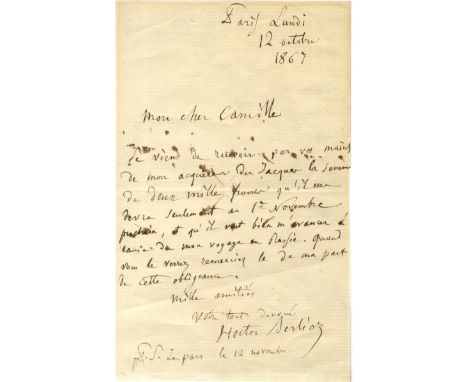 Paris Lundi
12 octobre
1867
Mon cher Camille
Je viens de recevoir par vos mains
de mon acquéreur du Jacquet la somme
de deux mille francs qu'il me
devra seulement au 1er Novembre
prochain, et qu'il veut bien m'avancer à
cause de mon voyage en Russie. Quand
vous le verrez remerciez le de ma part
de cette obligeance.
Mille amitiés
Votre tout dévoué
Hector Berlioz
P.S. Je pars le 12 novembre